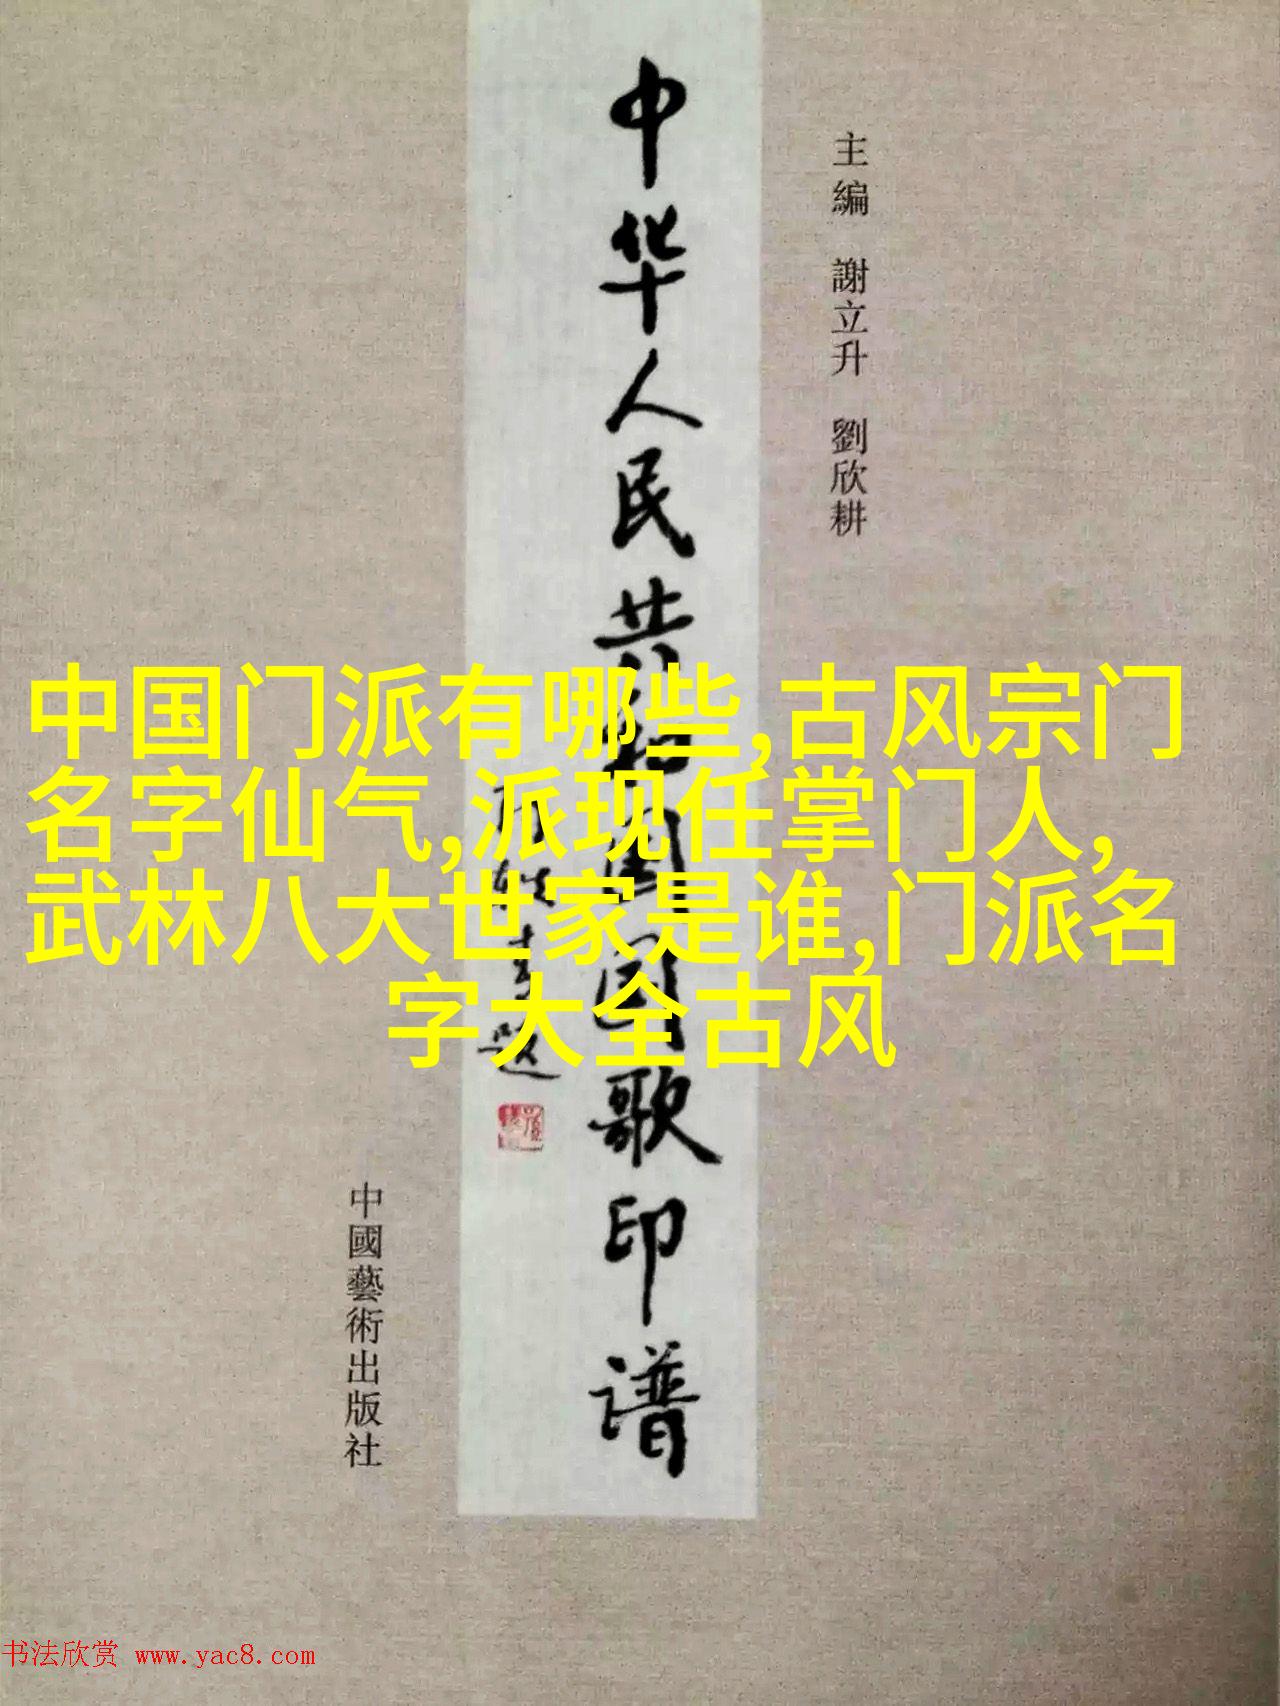 中华人民共和国国歌印谱
主編 謝立升 劉欣耕
中国门派有哪些,古风宗门
名字仙气,派现任掌门人,
武林八大世家是谁,门派名
字大全古风
题
中國藝術出版社
书法欣赏 www.yac8.com